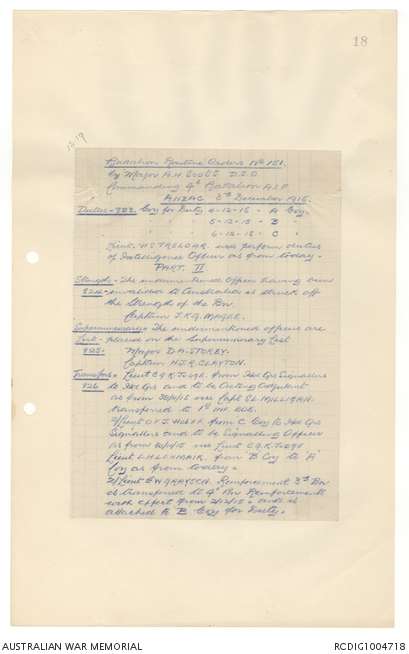 18
Battalion Routine Orders No 151.
by Major A.H. Scott D.S.O
Commanding 4th Battalion A.I.F
ANZAC 3rd December 1915.
Duties - 823 Coy for Duty 4-12-15 - A Coy.
" " 5-12-15 - B "
" " 6-12-15 - C "
Lieut. H.S. TRELOAR. will perform duties
of Intelligence Officer as from today.
PART II
Strength - The undermentioned Officer having been
824 - invalided to Australia is struck off
the Strength of the Bn.
Captain J.K.G. MAGEE.
Supernumerary - The undermentioned officers are
List - placed on the Supernumerary List
825 - Major D.A. STOREY.
Captain H.J.R. CLAYTON.
Transfers - Lieut from Hd Qrs Signallers
826 to Hd Qrs and to be Acting Adjutant
as from 30/11/15 vice Capt S.L. MILLIGAN.
transferred to 1st Inf. BDE.
2/Lieut from C Coy to Hd Qrs
Signallers and to be Signalling Officer
as from 30/11/15 vice Lieut
Lieut. from "B" Coy to "A"
Coy as from today.
2/Lieut Reinforcement 3rd Bn
is transferred to 4th Bn Reinforcements
with effect from 2/12/15 and is
attached to B Coy for Duty.
AUSTRALIAN WAR MEMORIAL
RCDIG1004718